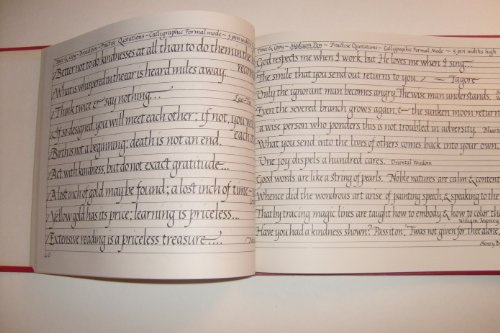 Broad Pen ~ Practice Quotations ~ Calligraphic Formal Mode ~ 5 pen widths
Better not to do kindnesses at all than to do them in the
What is whispered in the ear is heard miles away.
Think twice & say nothing...
If so designed, you will meet each other; if not, you
Birth is not a beginning; death is not an end.
Act with kindness, but do not exact gratitude...
A lost inch of gold may be found; a lost inch of time
Yellow gold has its price; learning is priceless...
Extensive reading is a priceless treasure...
Practice Quotations ~ Calligraphic Formal Mode ~ 5 pen widths high
God respects me when I work, but He loves me when I sing.
The smile that you send out returns to you. ~ Tagore
Only the ignorant man becomes angry. The wise man understands.
Even the severed branch grows again, & the sunken moon returns
a wise person who ponders this is not troubled in adversity.
What you send into the lives of others comes back into your own.
One joy dispels a hundred cares. Oriental Wisdom
Good words are like a string of pearls. Noble natures are calm & content
Whence did the wondrous art arise of painting speech, & speaking to the
That by tracing magic lines are taught how to embody & how to color
Have you had a kindness shown? Pass it on. 'Twas not given for thee alone,